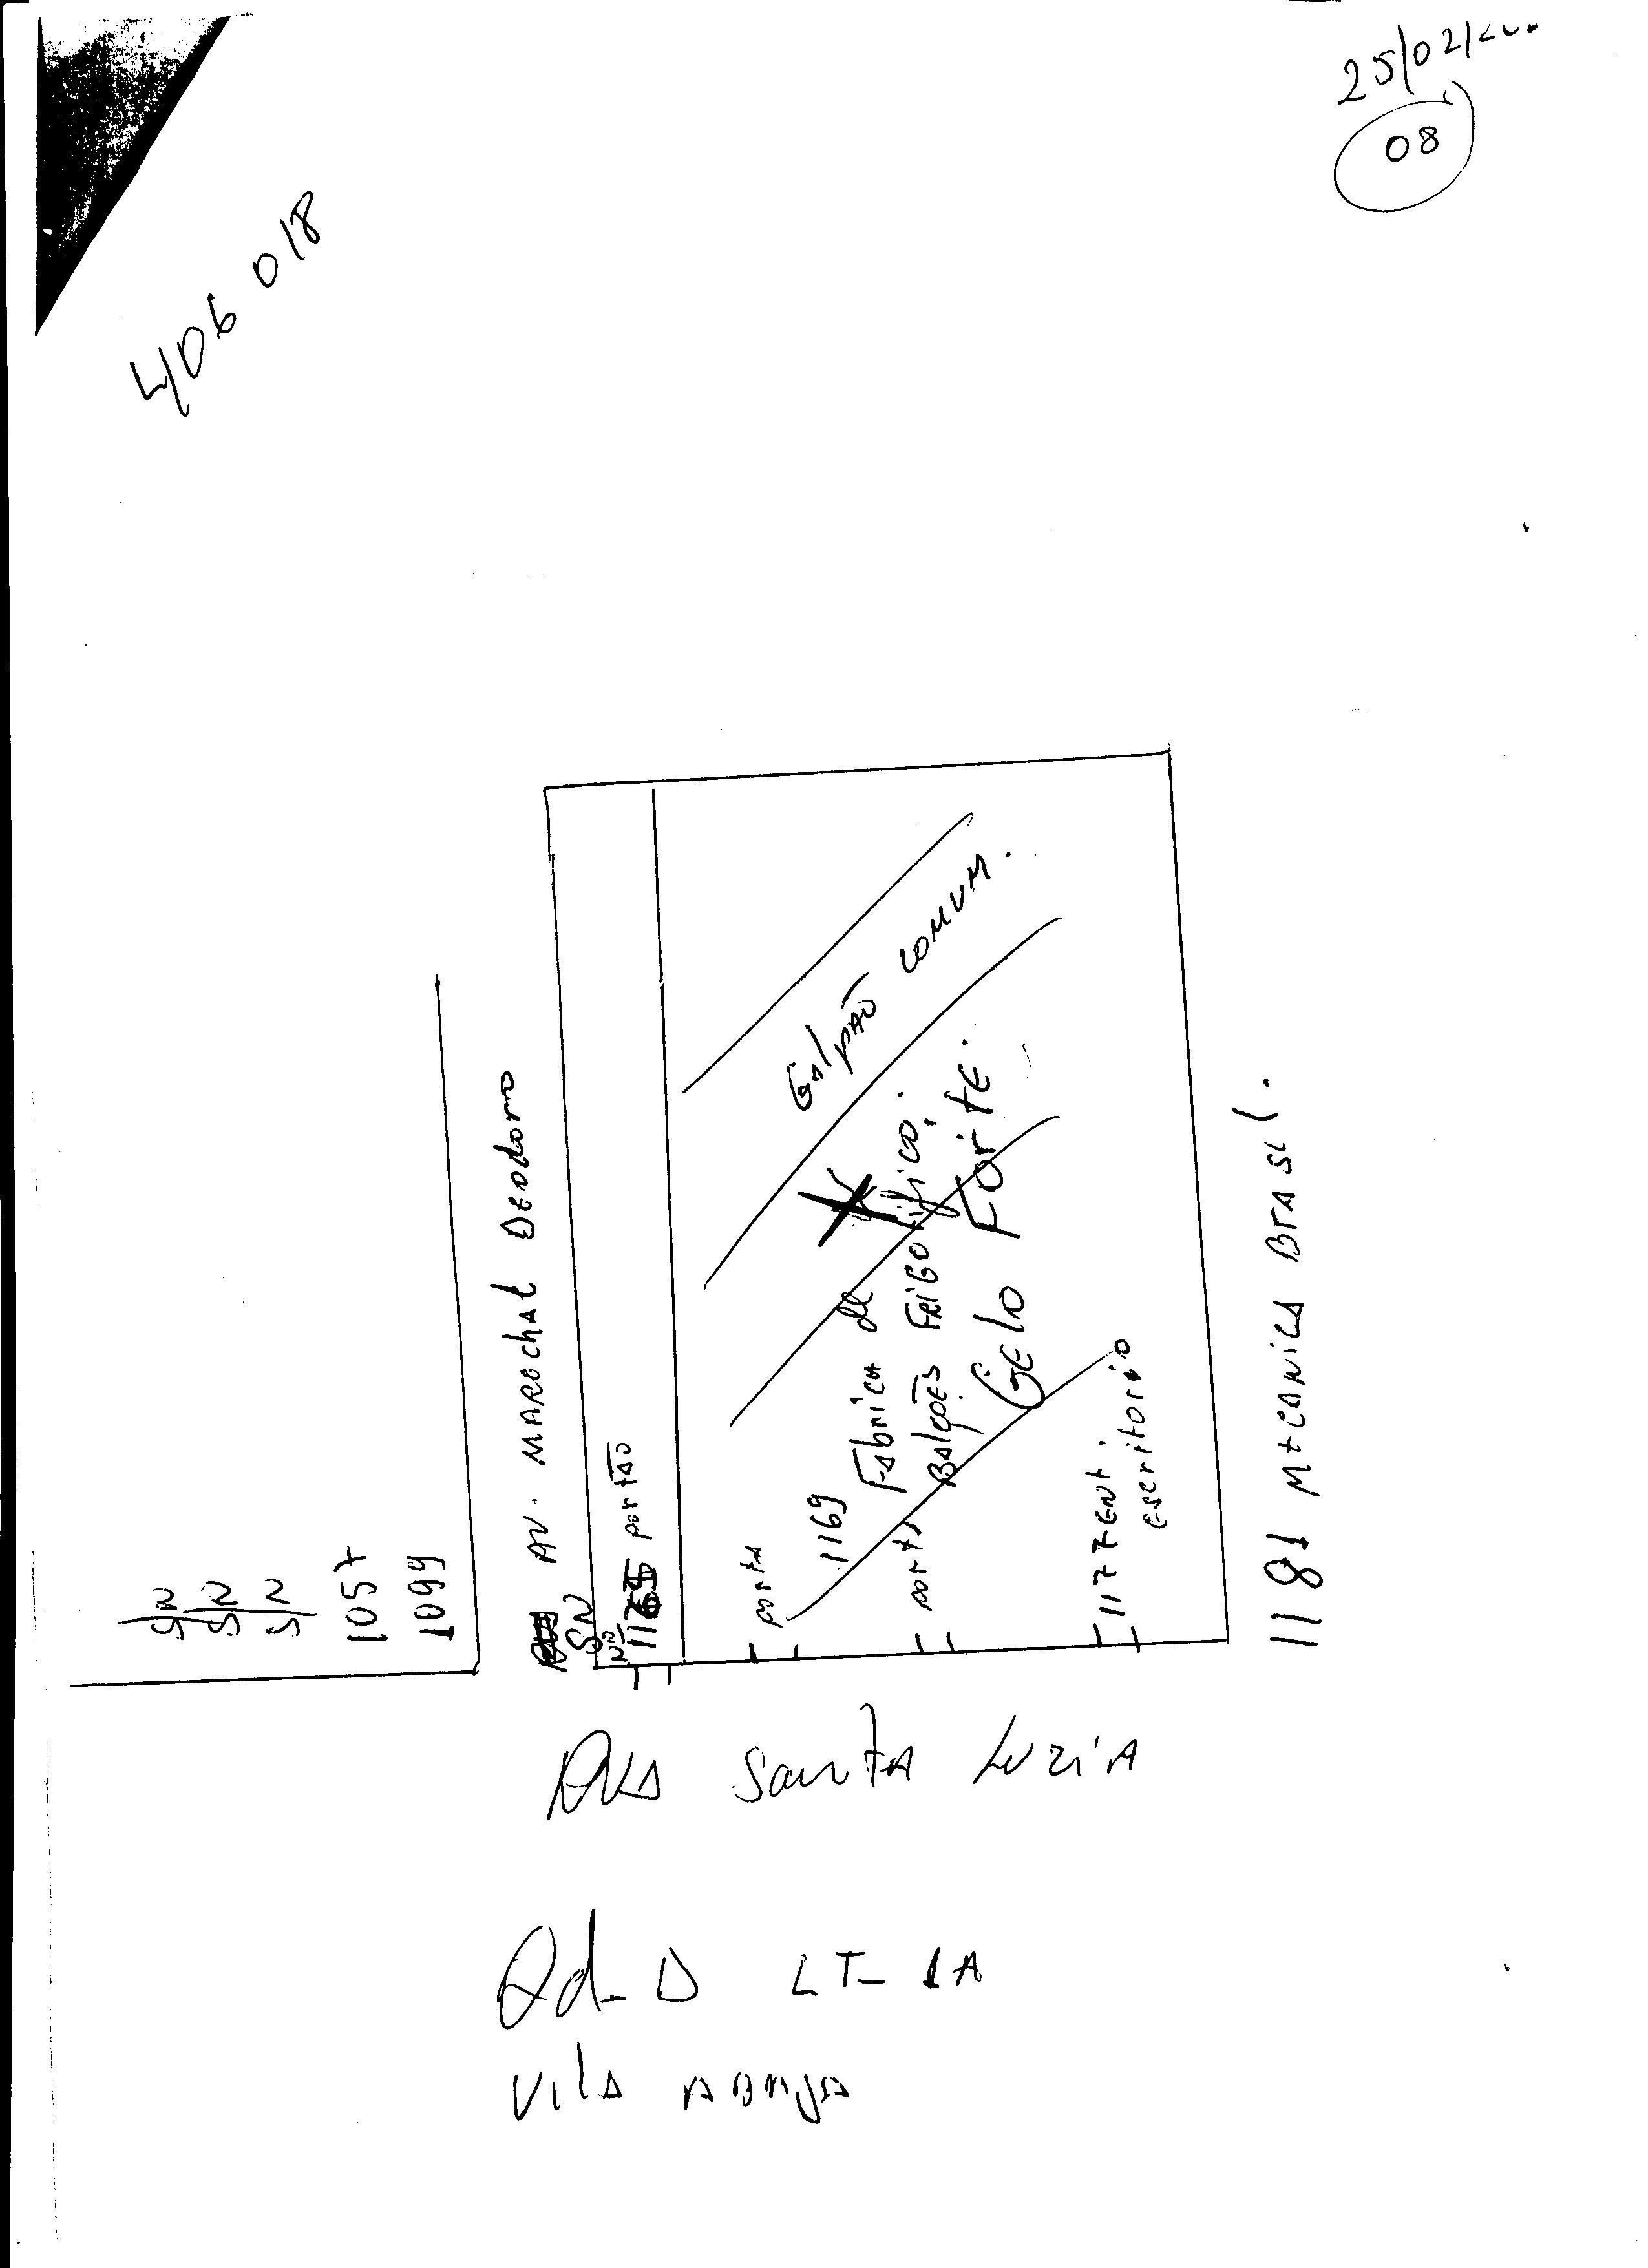 25/02/
08
406 018
SN
SN
SN
1057
1099
AV. MARECHAL DEODORO
SN
Nº
portão
GalpãO COMUM.
porta
1169
Fabrica de
Balcões FRIGORifico.
Gelo Forte.
porta
1177 ENt.
escritorio
1181 MECANICA BrASil.
RUA Santa LUZIA
Qd- D LT- 1A
Vila